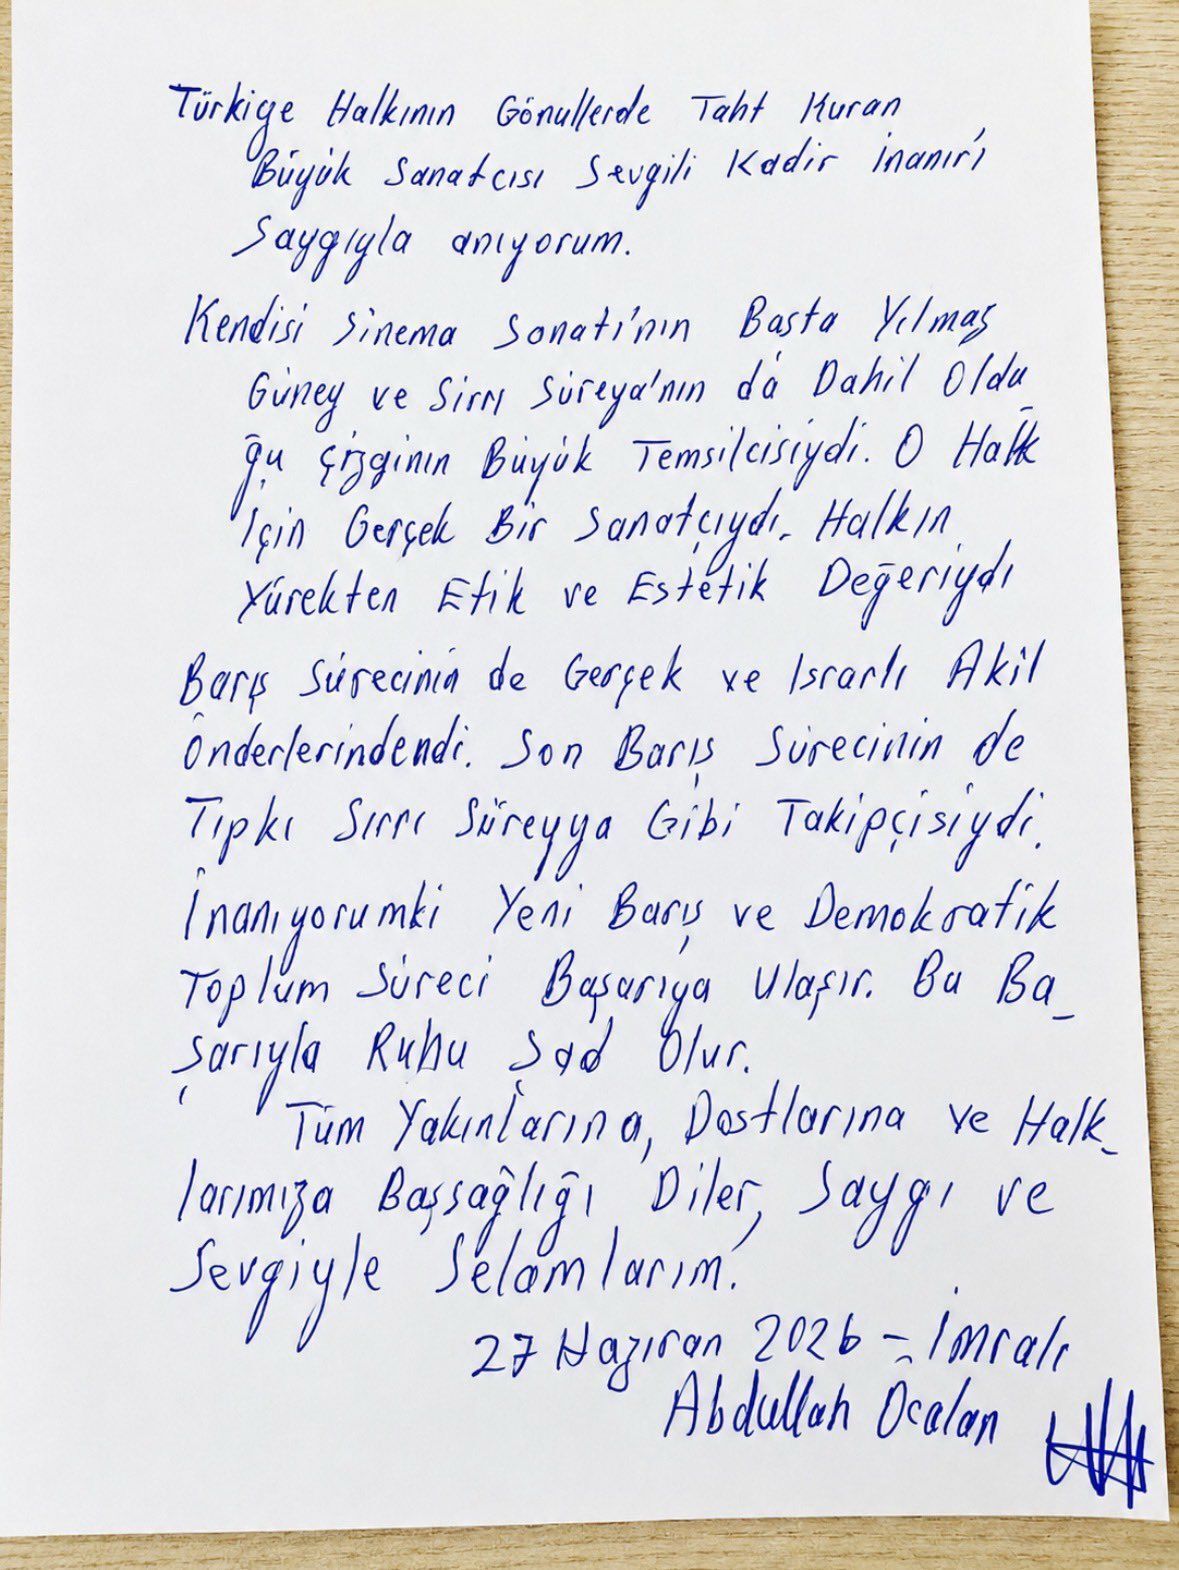 Türkiye Halkının Gönullerde Taht Kuran
Büyük Sanatcısı Sevgili Kadir İnanır'ı
Saygıyla anıyorum.
Kendisi Sinema Sonatı'nın Başta Yılmaz
Güney ve Sırrı Süreya'nın da Dahil Oldu_
ğu Çizginin Büyük Temsilcisiydi. O Halk
için Gerçek Bir Sanatçıydı. Halkın
Yürekten Etik ve Estetik Değeriydi
Barış Sürecinin de Gerçek ve Israrlı Akil
Önderlerindendi. Son Barış Sürecinin de
Tıpkı Sırrı Süreyya Gibi Takipçisiydi.
İnanıyorumki Yeni Barış ve Demokratik
Toplum Süreci Başarıya Ulaşır. Bu Ba_
şarıyla Ruhu Şad Olur.
Tüm Yakınlarına, Dostlarına ve Halk_
larımıza Başsağlığı Diler, Saygı ve
Sevgiyle Selamlarım.
27 Haziran 2026 - İmralı
Abdullah Öcalan